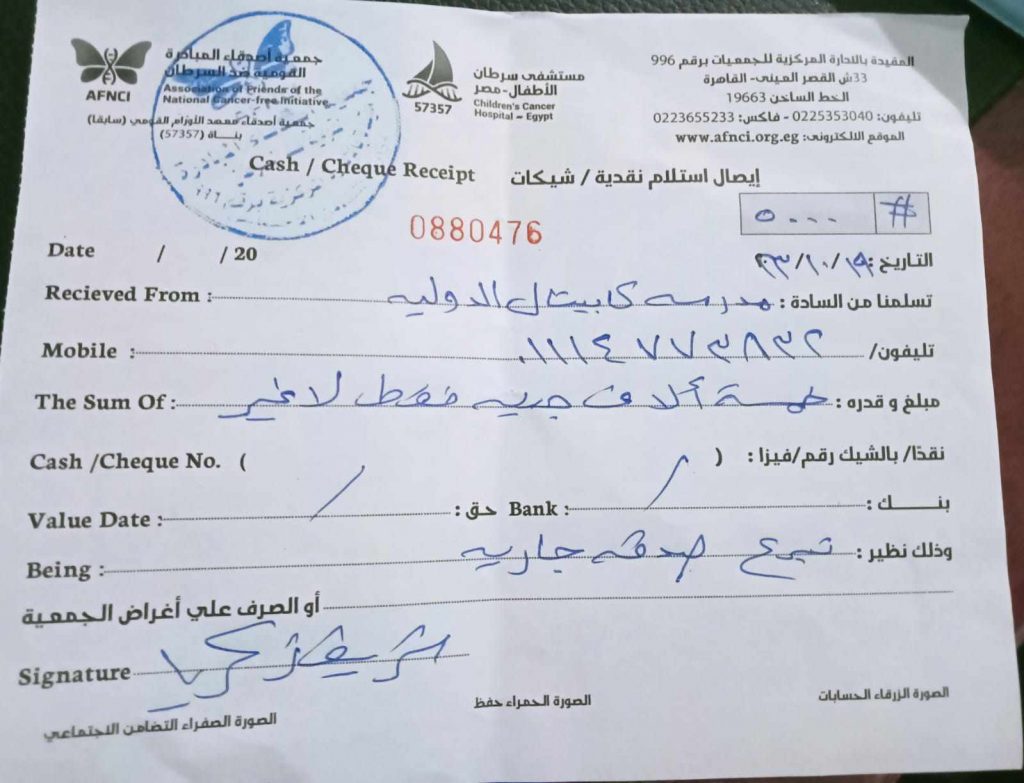 جمعية أصدقاء المبادرة
القومية ضد السرطان
Association of Friends of the
National Cancer-free Initiative
AFNCI
جمعية أصدقاء معهد الأورام القومي (سابقا)
بناة (57357)
مستشفى سرطان
الأطفال - مصر
Children's Cancer
Hospital – Egypt
57357
المقيدة بالادارة المركزية للجمعيات برقم 996
33ش القصر العينى- القاهرة
الخط الساخن 19663
تليفون: 0225353040 - فاكس: 0223655233
الموقع الالكترونى: www.afnci.org.eg
Cash / Cheque Receipt إيصال استلام نقدية / شيكات
# ٥٠٠٠
0880476
Date / / 20 التاريخ:
Recieved From : تسلمنا من السادة : مدرسه كابيتال الدوليه
Mobile : تليفون/ ٠١١١٤٧٧٣٨٣٢
The Sum Of : مبلغ و قدره : خمسة آلاف جنيه فقط لا غير
Cash /Cheque No. ( ) نقدًا/ بالشيك رقم/فيزا :
Value Date : / حق : Bank : / بنــــك :
Being : وذلك نظير : تبرع صدقه جاريه
أو الصرف علي أغراض الجمعية
Signature
الصورة الصفراء التضامن الاجتماعي الصورة الحمراء حفظ الصورة الزرقاء الحسابات